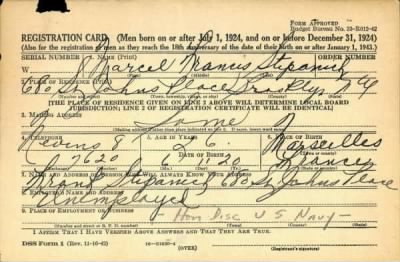 Form Approved
Budget Bureau No. 33-R012-42
REGISTRATION CARD (Men born on or after July 1, 1924, and on or before December 31, 1924)
(Also for the registration of men as they reach the 18th anniversary of the date of their birth on or after January 1, 1943.)
SERIAL NUMBER 1. NAME (Print) ORDER NUMBER
Marcel Francis Stipanich
2. PLACE OF RESIDENCE (Print)
680 St Johns Place Brooklyn NY
(Number and street) (Town, township, village, or city) (County) (State)
[THE PLACE OF RESIDENCE GIVEN ON LINE 2 ABOVE WILL DETERMINE LOCAL BOARD
JURISDICTION; LINE 2 OF REGISTRATION CERTIFICATE WILL BE IDENTICAL]
3. MAILING ADDRESS
Same
4. TELEPHONE 5. AGE IN YEARS 6. PLACE OF BIRTH
Nevins 8 26 Marseilles
DATE OF BIRTH
7620 20 France
7. NAME AND ADDRESS OF PERSON WHO WILL ALWAYS KNOW YOUR ADDRESS
Stipanich 680 St Johns Place
8. EMPLOYER'S NAME AND ADDRESS
Unemployed
9. PLACE OF EMPLOYMENT OR BUSINESS
- Hon Disc U S Navy -
(Number and street or R. F. D. number) (Town) (County) (State)
I AFFIRM THAT I HAVE VERIFIED ABOVE ANSWERS AND THAT THEY ARE TRUE.
DSS Form 1 (Rev. 11-16-42) (OVER) (Registrant's signature)